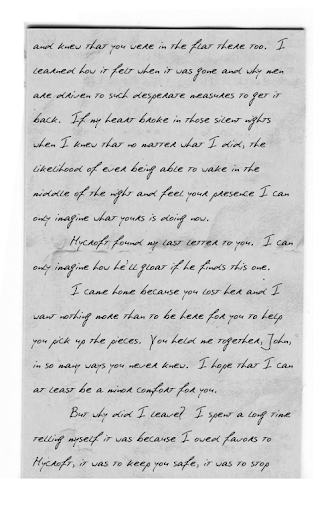 and knew that you were in the flat there too. I
learned how it felt when it was gone and why men
are driven to such desperate measures to get it
back. If my heart broke in those silent nights
when I knew that no matter what I did, the
likelihood of ever being able to wake in the
middle of the night and feel your presence I can
only imagine what yours is doing now.
Mycroft found my last letter to you. I can
only imagine how he'll gloat if he finds this one.
I came home because you lost her and I
want nothing more than to be here for you to help
you pick up the pieces. You held me together, John,
in so many ways you never knew. I hope that I can
at least be a minor comfort for you.
But why did I leave? I spent a long time
telling myself it was because I owed favors to
Mycroft, it was to keep you safe, it was to stop